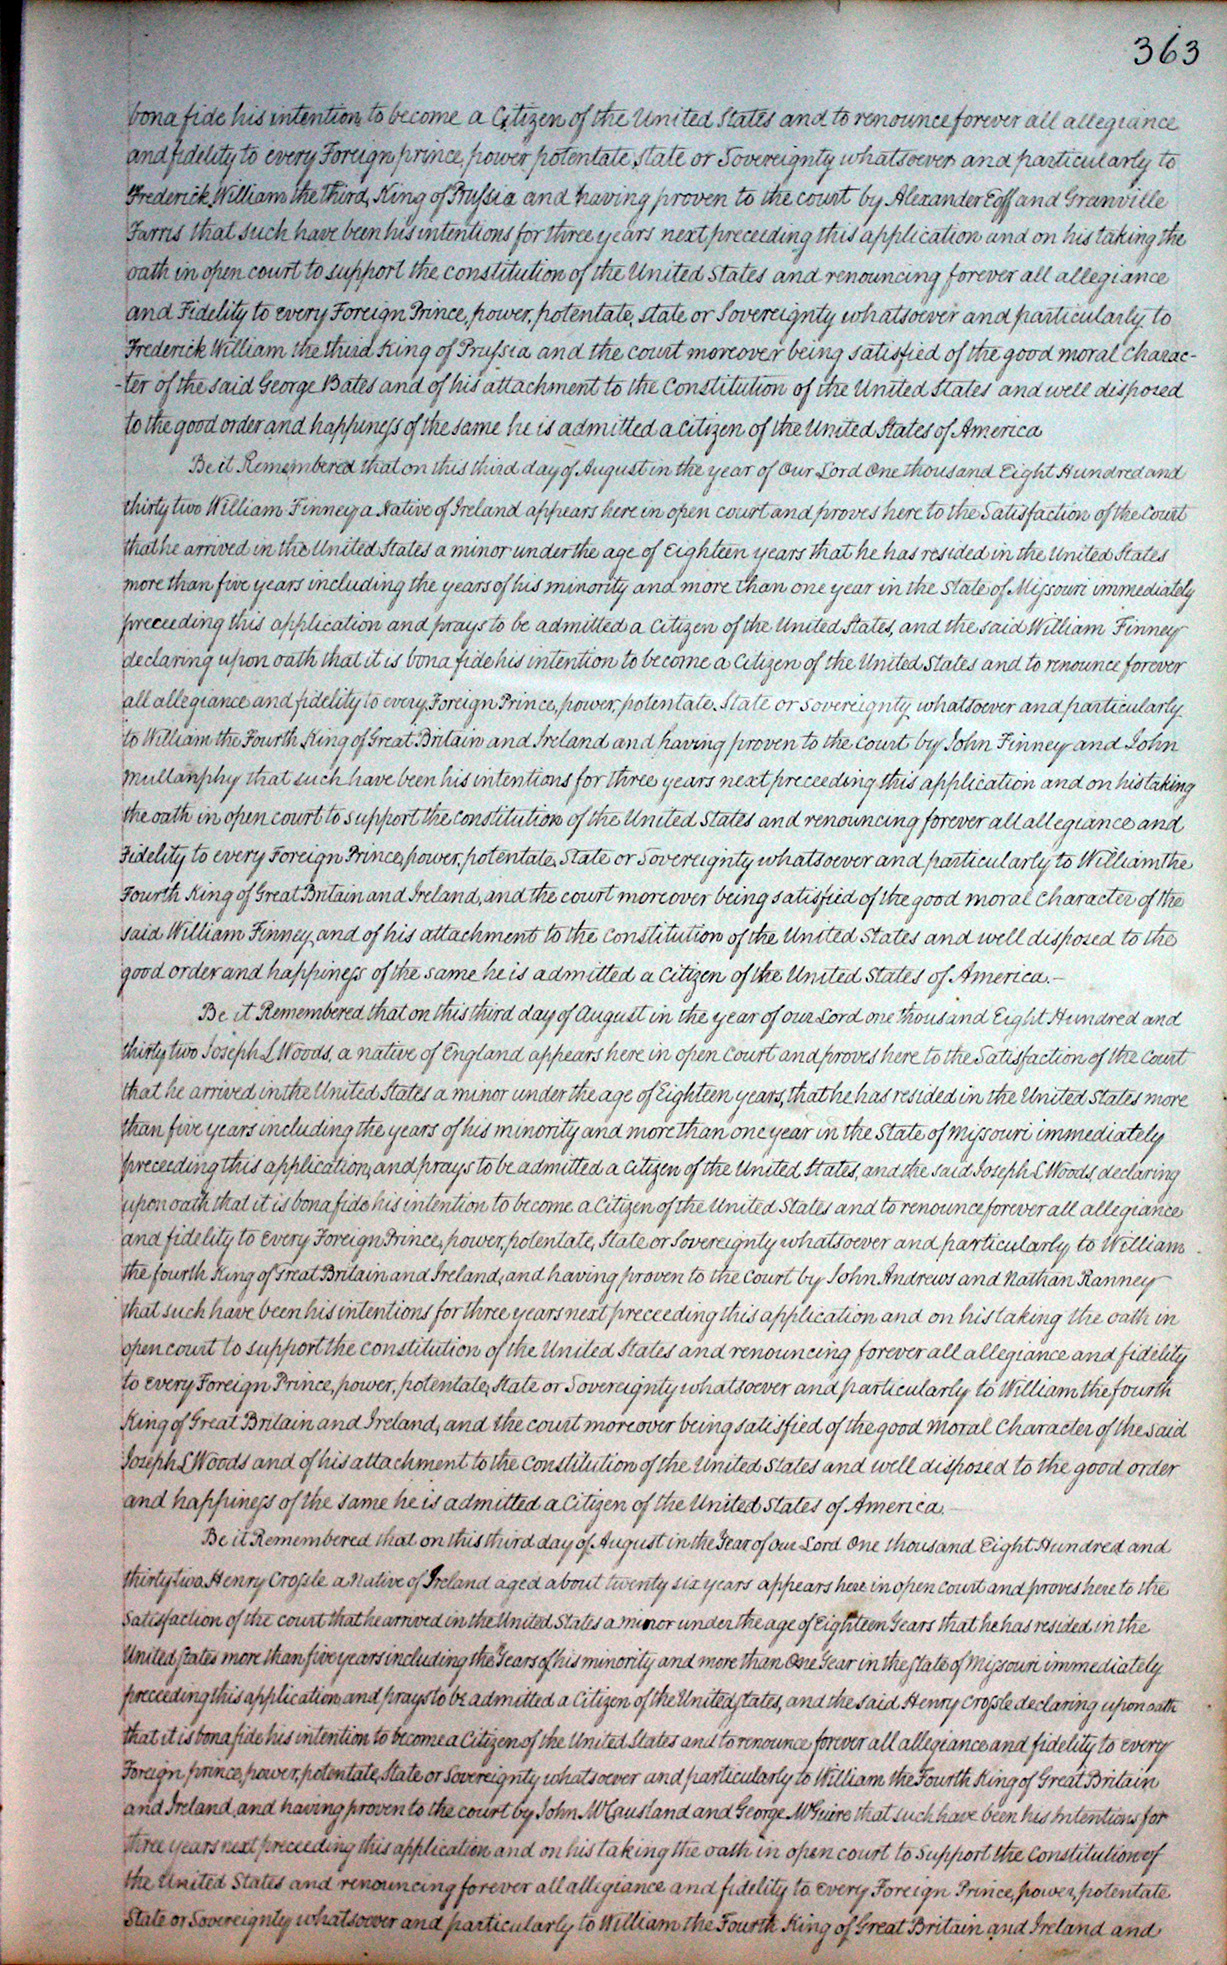 363
bona fide his intention to become a Citizen of the United States and to renounce forever all allegiance
and fidelity to every Foreign prince, power potentate, State or Sovereignty whatsoever and particularly to
Frederick William the third, King of Prussia and having proven to the court by Alexander and Granville
Farris that such have been his intentions for three years next preceeding this application and on his taking the
oath in open court to support the constitution of the United States and renouncing forever all allegiance
and Fidelity to every Foreign Prince, power, potentate, state or Sovereignty whatsoever and particularly to
Frederick William the third King of Prussia and the court moreover being satisfied of the good moral Charac-
-ter of the said George Bates and of his attachment to the Constitution of the United States and well disposed
to the good order and happiness of the same he is admitted a Citizen of the United States of America
Be it Remembered that on this third day of August in the year of Our Lord One thousand Eight Hundred and
thirty two William Finney a Native of Ireland appears here in open court and proves here to the Satisfaction of the Court
that he arrived in the United States a minor under the age of Eighteen years that he has resided in the United States
more than five years including the years of his minority and more than one year in the State of Missouri immediately
preceeding this application and prays to be admitted a Citizen of the United States, and the said William Finney
declaring upon oath that it is bona fide his intention to become a Citizen of the United States and to renounce forever
all allegiance and fidelity to every Foreign Prince, power, potentate. State or Sovereignty whatsoever and particularly
to William the Fourth King of Great Britain and Ireland and having proven to the Court by John Finney and John
Mullanphy that such have been his intentions for three years next preceeding this application and on his taking
the oath in open court to support the constitution of the United States and renouncing forever all allegiance and
Fidelity to every Foreign Prince, power, potentate, State or Sovereignty whatsoever and particularly to William the
Fourth King of Great Britain and Ireland, and the court moreover being satisfied of the good moral character of the
said William Finney, and of his attachment to the Constitution of the United States and well disposed to the
good order and happiness of the same he is admitted a Citizen of the United States of America.-
Be it Remembered that on this third day of August in the year of our Lord one thousand Eight Hundred and
thirty two Joseph L Woods, a native of England appears here in open Court and proves here to the Satisfaction of the Court
that he arrived in the United States a minor under the age of Eighteen years, that he has resided in the United States more
than five years including the years of his minority and more than one year in the State of Missouri immediately
preceeding this application, and prays to be admitted a Citizen of the United States, and the said Joseph L Woods, declaring
upon oath that it is bona fide his intention to become a Citizen of the United States and to renounce forever all allegiance
and fidelity to Every Foreign Prince, power, potentate, State or Sovereignty whatsoever and particularly to William
the fourth King of Great Britain and Ireland, and having proven to the Court by John Andrews and Nathan Ranney
that such have been his intentions for three years next preceeding this application and on his taking the oath in
open court to support the constitution of the United States and renouncing forever all allegiance and fidelity
to every Foreign Prince, power, potentate, State or Sovereignty whatsoever and particularly to William the fourth
King of Great Britain and Ireland, and the court moreover being satisfied of the good Moral Character of the said
Joseph L Woods and of his attachment to the Constitution of the United States and well disposed to the good order
and happiness of the same he is admitted a Citizen of the United States of America.
Be it Remembered that on this third day of August in the Year of our Lord One thousand Eight Hundred and
thirty two Henry Crossle a Native of Ireland aged about twenty six years appears here in open court and proves here to the
Satisfaction of the court that he arrived in the United States a minor under the age of Eighteen Years that he has resided in the
United States more than five years including the Years of his minority and more than One Year in the State of Missouri immediately
preceeding this application and prays to be admitted a Citizen of the United States, and the said Henry Crossle declaring upon oath
that it is bona fide his intention to become a Citizen of the United States and to renounce forever all allegiance and fidelity to Every
Foreign prince, power, potentate, State or Sovereignty whatsoever and particularly to William the Fourth King of Great Britain
and Ireland, and having proven to the court by John McCausland and George McGuire that such have been his Intentions for
three years next preceeding this application and on his taking the oath in open court to Support the Constitution of
the United States and renouncing forever all alligiance and fidelity to Every Foreign Prince, power, potentate
State or Sovereignty whatsoever and particularly to William the Fourth King of Great Britain and Ireland and